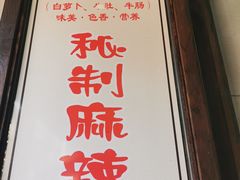 (白萝卜、牛肚、牛肠)
味美·色香·营养
秘
制
麻
辣